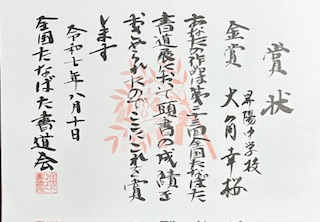 賞状
昇陽中学校
金賞 大角幸桜
あなたの作品は第三三回全国たなばた
書道展において頭書の成績を
おさめられたのでここにこれを賞
します
令和七年八月十日
全国たなばた書道会